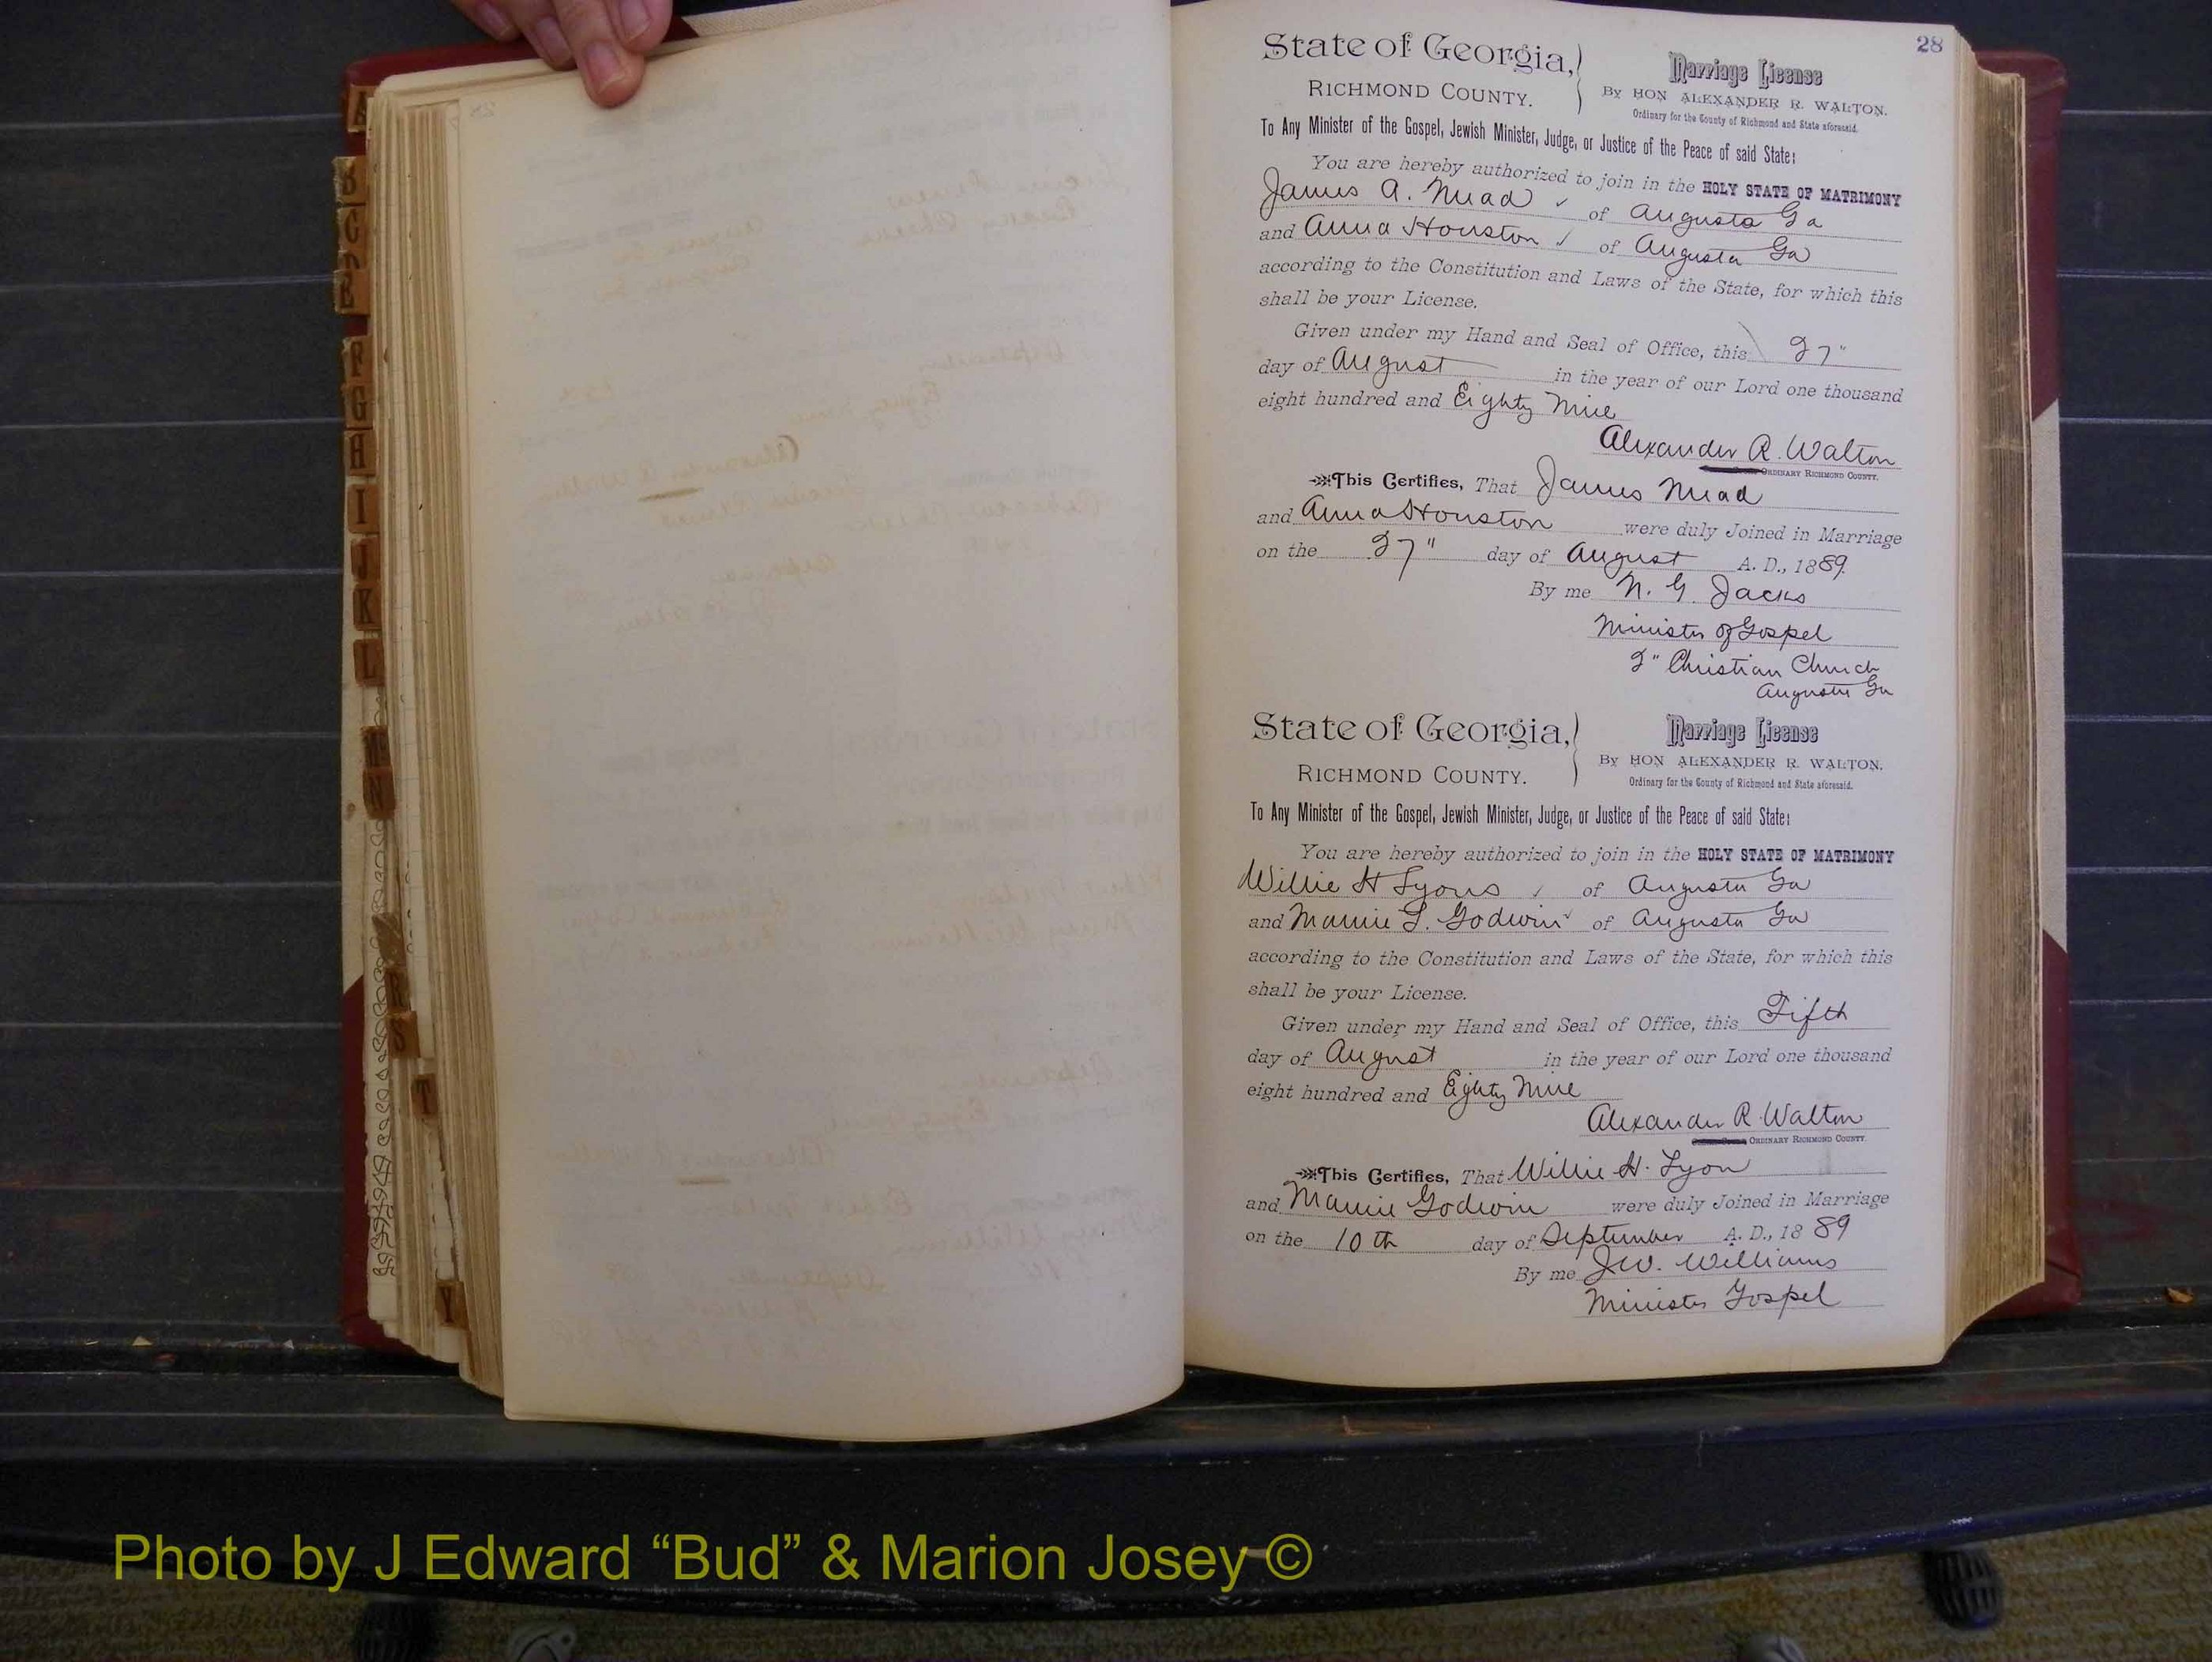 28
State of Georgia,
RICHMOND COUNTY.
Marriage License
By HON ALEXANDER R. WALTON.
Ordinary for the County of Richmond and State aforesaid.
To Any Minister of the Gospel, Jewish Minister, Judge, or Justice of the Peace of said State:
You are hereby authorized to join in the HOLY STATE OF MATRIMONY
James A. Mead ✓ of Augusta Ga
and Anna Houston ✓ of Augusta Ga
according to the Constitution and Laws of the State, for which this
shall be your License.
Given under my Hand and Seal of Office, this 27"
day of August in the year of our Lord one thousand
eight hundred and Eighty Nine
Alexander R. Walton
ORDINARY RICHMOND COUNTY.
This Certifies, That James Mead
and Anna Houston were duly Joined in Marriage
on the 27" day of August A. D., 1889.
By me N. G. Jacks
Minister of Gospel
2" Christian Church
Augusta Ga
State of Georgia,
RICHMOND COUNTY.
Marriage License
By HON ALEXANDER R. WALTON.
Ordinary for the County of Richmond and State aforesaid.
To Any Minister of the Gospel, Jewish Minister, Judge, or Justice of the Peace of said State:
You are hereby authorized to join in the HOLY STATE OF MATRIMONY
Willie H Lyons ✓ of Augusta Ga
and Mamie L. Godwin ✓ of Augusta Ga
according to the Constitution and Laws of the State, for which this
shall be your License.
Given under my Hand and Seal of Office, this Fifth
day of August in the year of our Lord one thousand
eight hundred and Eighty Nine
Alexander R. Walton
ORDINARY RICHMOND COUNTY.
This Certifies, That Willie H. Lyon
and Mamie Godwin were duly Joined in Marriage
on the 10th day of September A. D., 1889
By me J.W. Williams
Minister Gospel
A
B
C
E
F
G
H
I
J
K
L
Mc
N
S
T
Y
Photo by J Edward “Bud” & Marion Josey ©